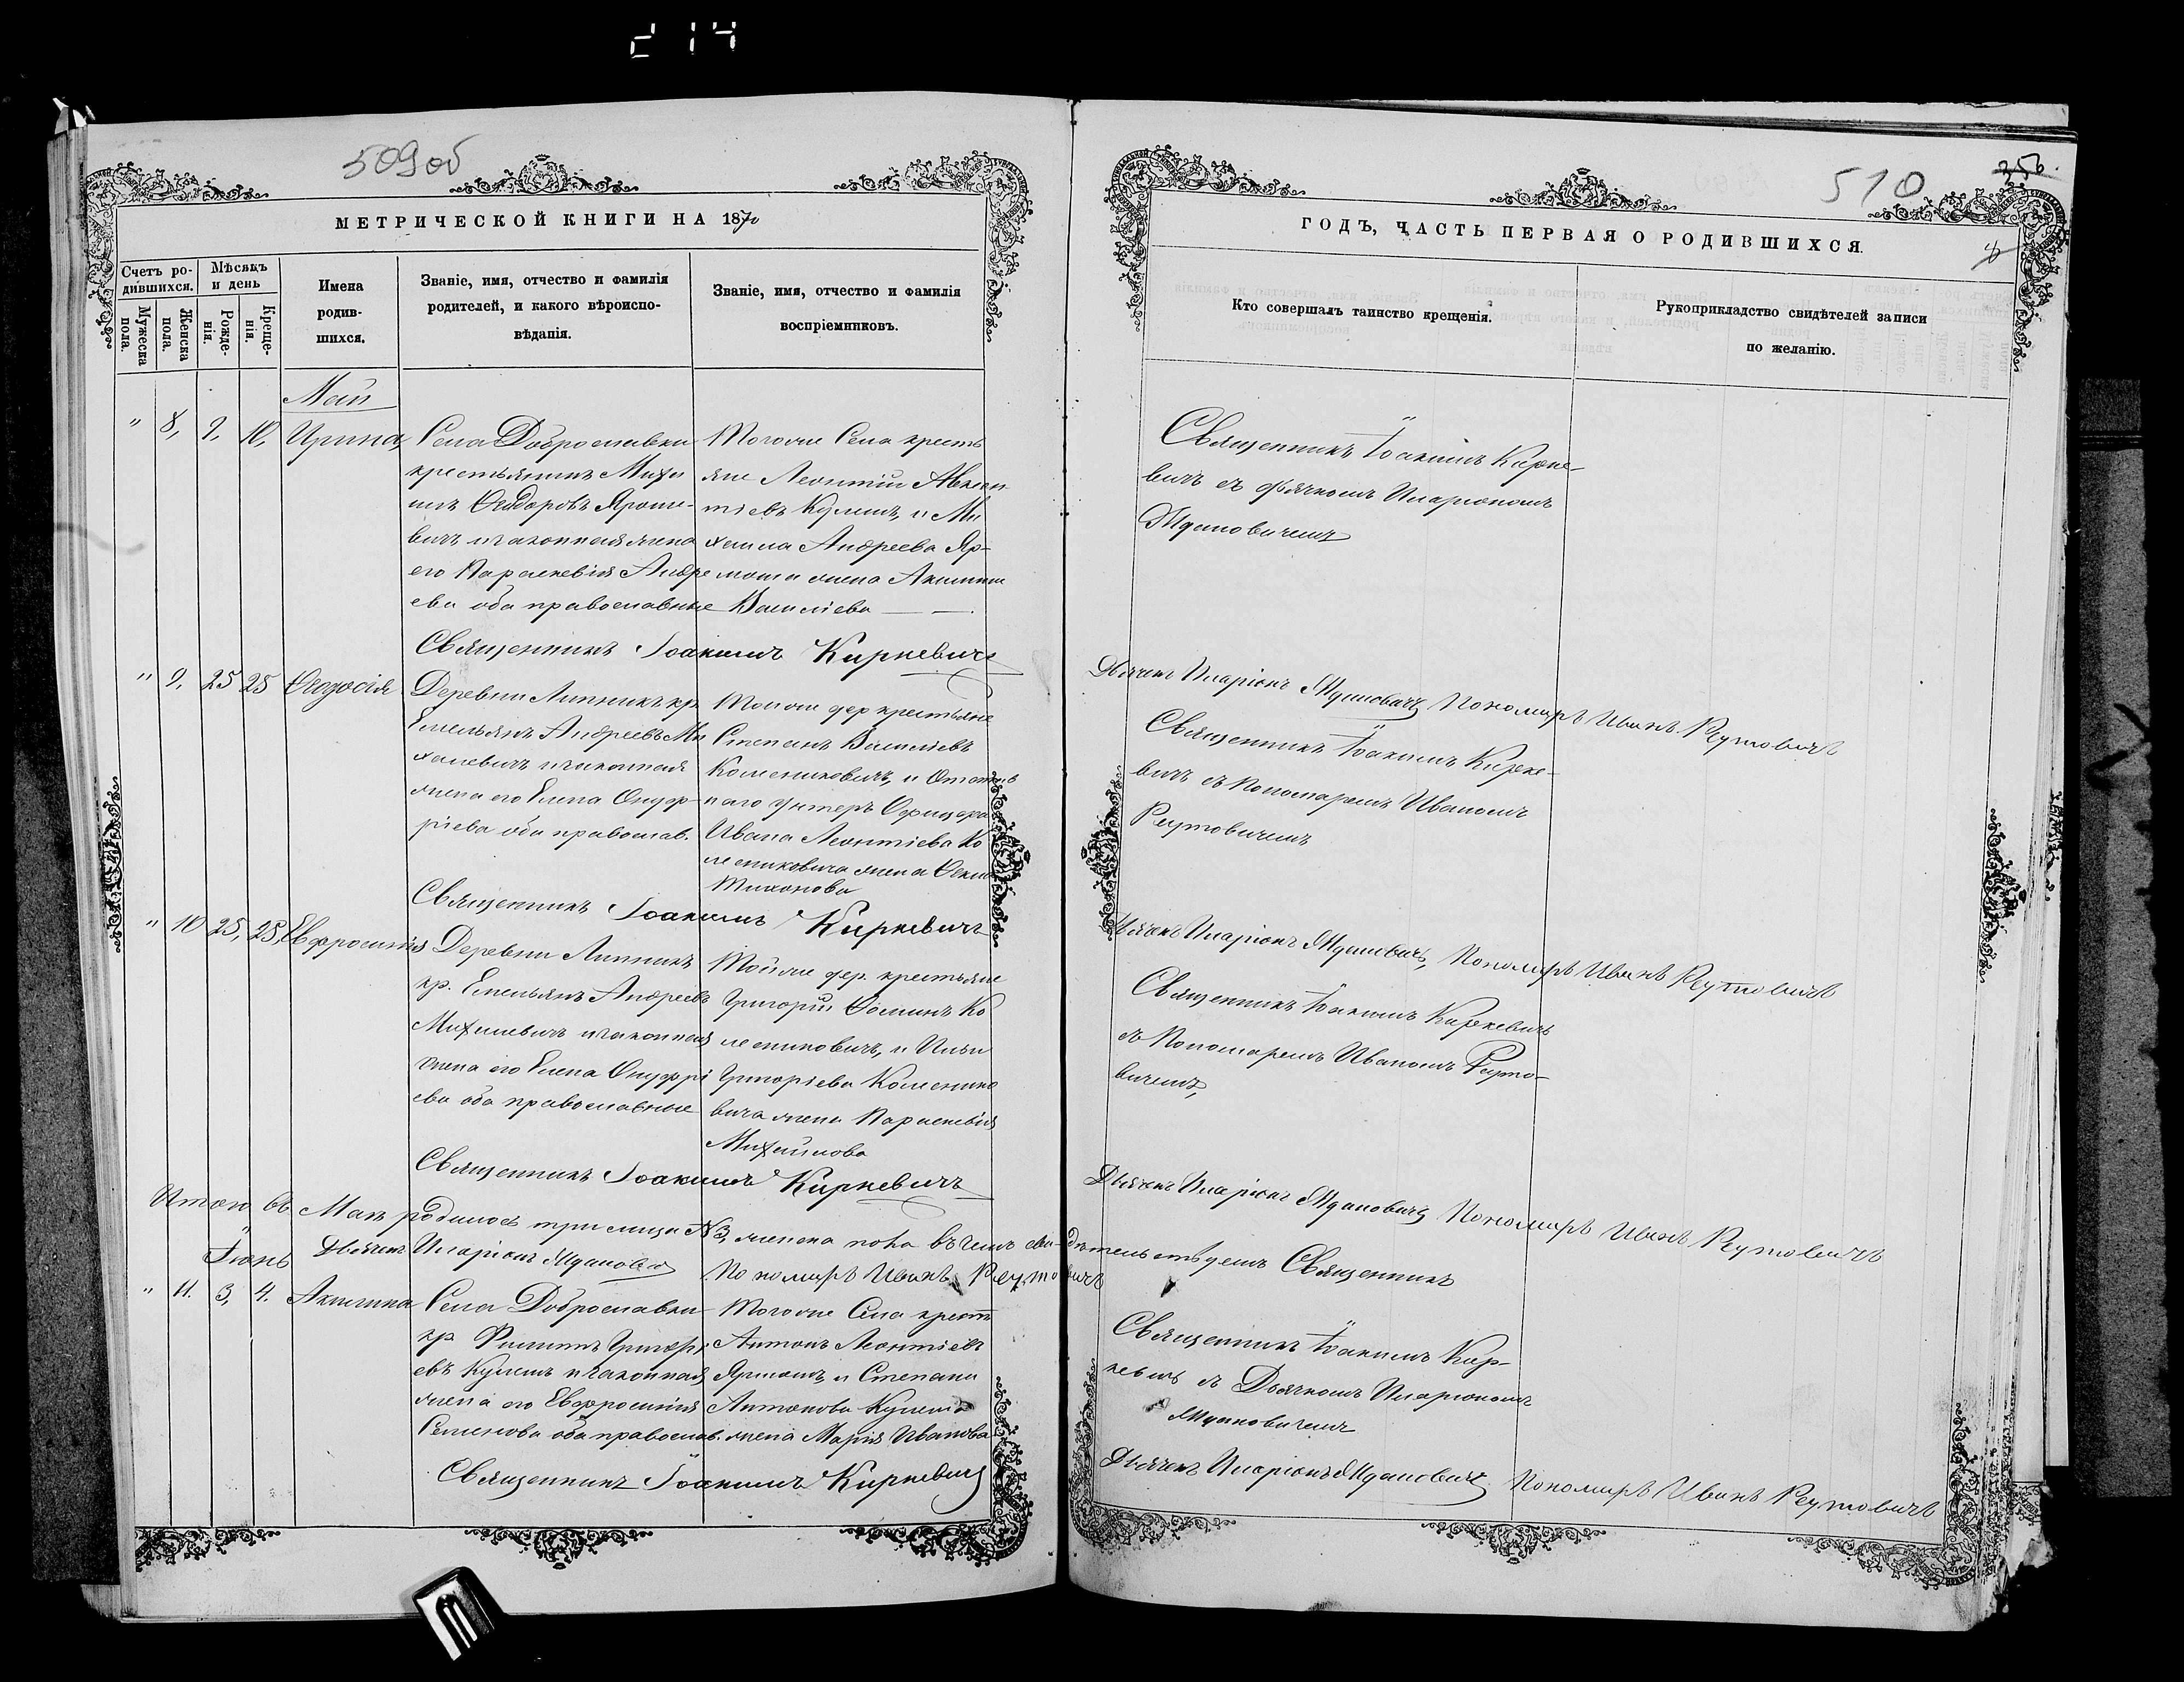 214
509об
МЕТРИЧЕСКОЙ КНИГИ НА 1870
Счетъ ро-
дившихся.
Мѣсяцъ
и день
Мужеска
пола.
Женска
пола.
Рожде-
нія.
Креще-
нія.
Имена
родив-
шихся.
Званіе, имя, отчество и фамилія
родителей, и какого вѣроиспо-
вѣданія.
Званіе, имя, отчество и фамилія
воспріемниковъ.
Май
" 8, 9, 10, Ирина,
Села Доброславки
крестьянинъ Миха
илъ Ѳеодоровъ Яроше-
вичъ и законная жена
его Параскевія Андре
ева оба православные
Тогоже Села кресть
яне Леонтій Авксен
тіевъ Кулешъ, и Ми
хаила Андреева Яр-
моша жена Акилина
Василіева
Священникъ Іоакимъ Киркевичъ
" 9, 25 25 Ѳеодосія
Деревни Липникъ кр.
Емельянъ Андреевъ Ми
халевичъ и законная
жена его Елена Онуф-
ріева оба православ.
Тойже дер. крестьяне
Степанъ Василіевъ
Колениковичъ, и Отстав
наго унтеръ Офицера
Ивана Леонтіева Ко
лениковича жена Ѳекла
Тихонова
Священникъ Іоакимъ Киркевичъ
" 10 25, 25, Евфросинія
Деревни Липникъ
кр. Емельянъ Андреевъ
Михалевичъ и законная
жена его Елена Онуфрі
ева оба православные
Тойже дер. крестьяне
Григорій Ѳоминъ Ко
лениковичъ, и Ильи
Григоріева Коленико
вича жена Параскевія
Михайлова
Священникъ Іоакимъ Киркевичъ
Итого въ Маѣ родилось три лица № 3, женска пола въ чемъ свидѣтельствуемъ Священникъ
Дьячекъ Иларіонъ Ждановичъ Пономарь Иванъ Реутовичъ
Іюнь
" 11. 3, 4. Акилина
Села Доброславки
кр. Филиппъ Григорі
евъ Кулешъ и законная
жена его Евфросинія
Семенова оба православ.
Тогоже Села крест.
Антонъ Леонтіевъ
Ярмошъ, и Степана
Антонова Кулеша
жена Марія Иванова
Священникъ Іоакимъ Киркевичъ
510
356.
ГОДЪ, ЧАСТЬ ПЕРВАЯ О РОДИВШИХСЯ.
Кто совершалъ таинство крещенія.
Рукоприкладство свидѣтелей записи
по желанію.
Священникъ Іоакимъ Кирке-
вичъ съ дьячкомъ Иларіономъ
Ждановичемъ
Дьячекъ Иларіонъ Ждановичъ Пономарь Иванъ Реутовичъ
Священникъ Іоакимъ Кирке-
вичъ съ Пономаремъ Иваномъ
Реутовичемъ
Дьячекъ Иларіонъ Ждановичъ, Пономарь Иванъ Реутовичъ
Священникъ Іоакимъ Киркевичъ
съ Пономаремъ Иваномъ Реуто-
вичемъ,
Дьячекъ Иларіонъ Ждановичъ Пономарь Иванъ Реутовичъ
Священникъ Іоакимъ Кир-
кевичъ съ Дьячкомъ Иларіономъ
Ждановичемъ
Дьячекъ Иларіонъ Ждановичъ Пономарь Иванъ Реутовичъ